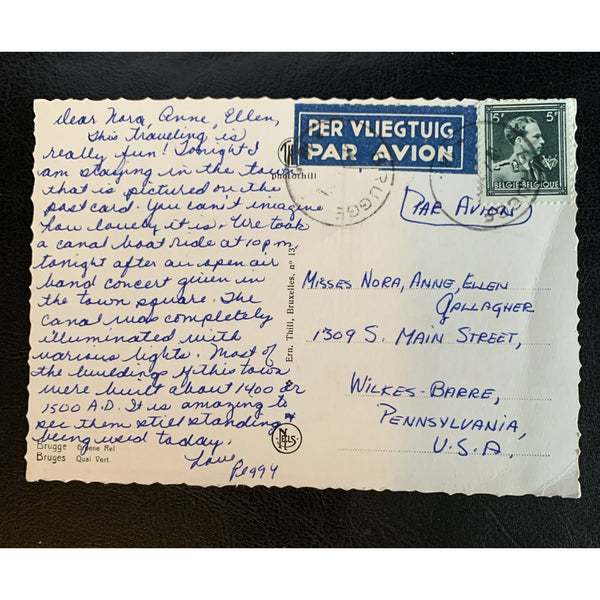 Dear Nora, Anne, Ellen,
This traveling is
really fun! Tonight I
am staying in the town
that is pictured on the
post card. You can't imagine
how lovely it is. We took
a canal boat ride at 10 pm
tonight after an open air
band concert given in
the town square. The
canal was completely
illuminated with
various lights. Most of
the buildings of this town
were built about 1400 or
1500 A.D. It is amazing to
see them still standing &
being used today.
Love
Peggy
Brugge Groene Rei
Bruges Quai Vert.
photothill
Ern. Thill, Bruxelles, nº 13
NELS
PER VLIEGTUIG
PAR AVION
BRUGGE
5F 5F
BELGIE-BELGIQUE
PAR AVION
MISSES NORA, ANNE, ELLEN
GALLAGHER
1309 S. MAIN STREET,
WILKES-BARRE,
PENNSYLVANIA,
U.S.A.